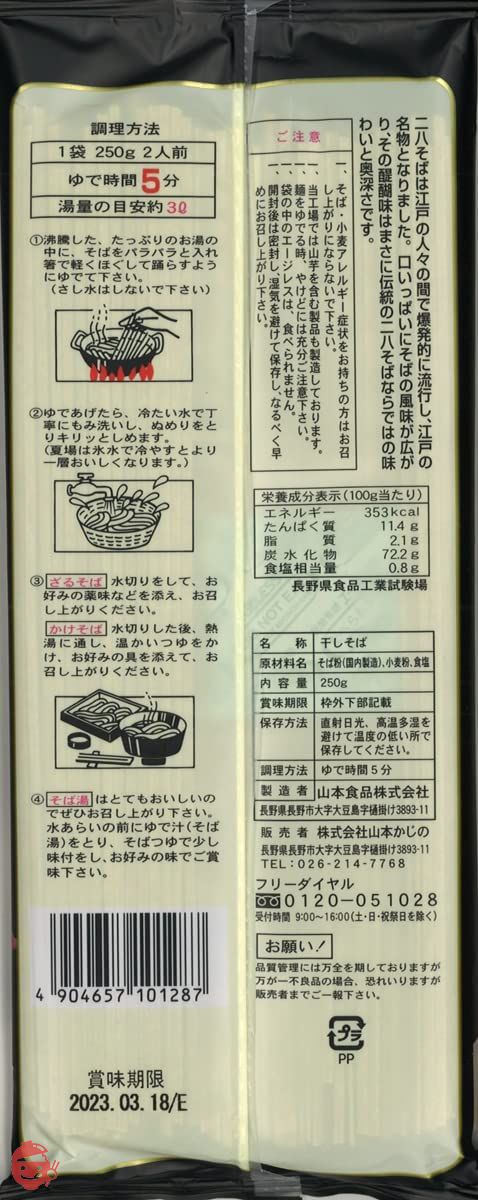 調理方法
1袋 250g 2人前
ゆで時間5分
湯量の目安約3ℓ
①沸騰した、たっぷりのお湯の
中に、そばをパラパラと入れ
箸で軽くほぐして踊らすよう
にゆでて下さい。
(さし水はしないで下さい)
②ゆであげたら、冷たい水で丁
寧にもみ洗いし、ぬめりをと
りキリッとしめます。
(夏場は氷水で冷やすとより
一層おいしくなります。)
③ざるそば 水切りをして、お
好みの薬味などを添え、お召
し上がりください。
かけそば 水切りした後、熱
湯に通し、温かいつゆをか
け、お好みの具を添えて、お
召し上がりください。
④そば湯 はとてもおいしいの
でぜひお召し上がり下さい。
水あらいの前にゆで汁(そば
湯)をとり、そばつゆで少し
味付をし、お好みの味でご賞
味下さい。
4 904657 101287
賞味期限
2023.03.18/E
二八そばは江戸の人々の間で爆発的に流行し、江戸の
名物となりました。口いっぱいにそばの風味が広が
り、その醍醐味はまさに伝統の二八そばならではの味
わいと奥深さです。
ご注意
一、そば・小麦アレルギー症状をお持ちの方はお召
し上がりにならないで下さい。
一、当工場では山芋を含む製品も製造しております。
一、麺をゆでる時、やけどには充分ご注意下さい。
一、袋の中のエージレスは、食べられません。
一、開封後は密封し、湿気を避けて保存し、なるべく早
めにお召し上がり下さい。
栄養成分表示(100g当たり)
エネルギー 353kcal
たんぱく質 11.4g
脂質 2.1g
炭水化物 72.2g
食塩相当量 0.8g
長野県食品工業試験場
名称 干しそば
原材料名 そば粉(国内製造)、小麦粉、食塩
内容量 250g
賞味期限 枠外下部記載
保存方法 直射日光、高温多湿を
避けて温度の低い所で
保存してください。
調理方法 ゆで時間5分
製造者 山本食品株式会社
長野県長野市大字大豆島字樋掛け3893-11
販売者 株式会社山本かじの
長野県長野市大字大豆島字樋掛け3893-11
TEL:026-214-7768
フリーダイヤル
0120-051028
受付時間 9:00〜16:00(土・日・祝祭日を除く)
お願い!
品質管理には万全を期しておりますが
万が一不良品の場合、恐れいりますが
販売者までご一報下さい。
プラ
PP